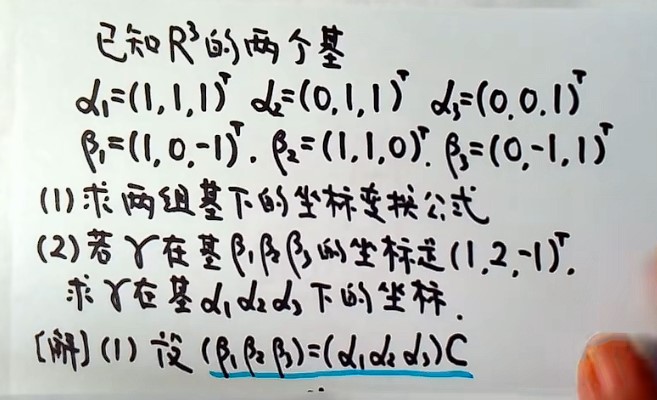 已知R³的两个基
α₁=(1,1,1)ᵀ α₂=(0,1,1)ᵀ α₃=(0,0,1)ᵀ
β₁=(1,0,-1)ᵀ. β₂=(1,1,0)ᵀ. β₃=(0,-1,1)ᵀ
(1)求两组基下的坐标变换公式
(2)若γ在基β₁β₂β₃的坐标是(1,2,-1)ᵀ.
求γ在基α₁α₂α₃下的坐标.
[解](1)设(β₁β₂β₃)=(α₁α₂α₃)C